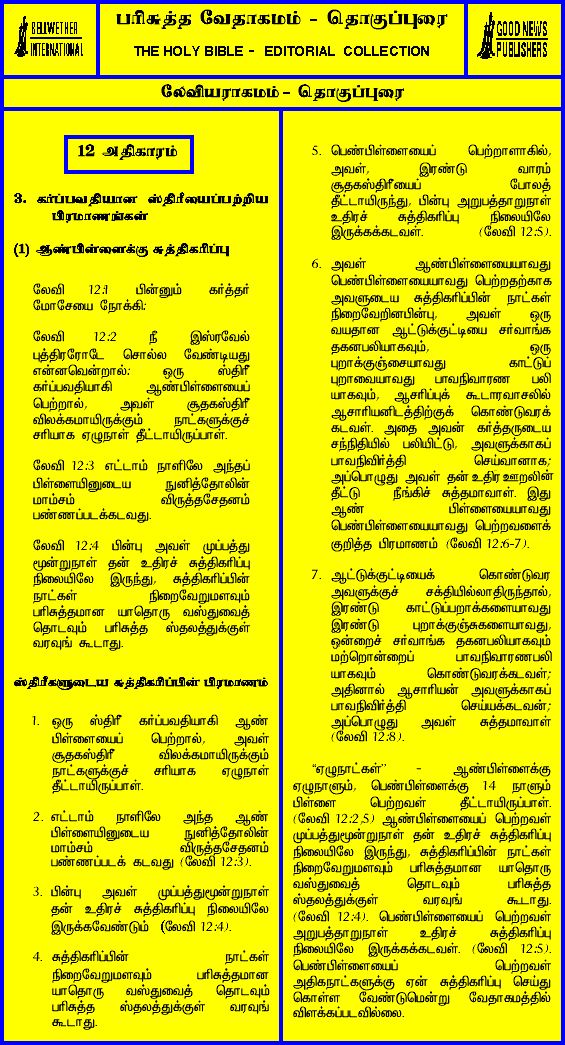 BELLWETHER
INTERNATIONAL
பரிசுத்த வேதாகமம் - தொகுப்புரை
THE HOLY BIBLE - EDITORIAL COLLECTION
GOOD NEWS
PUBLISHERS
லேவியராகமம் - தொகுப்புரை
12 அதிகாரம்
3. கர்ப்பவதியான ஸ்திரீயைப்பற்றிய
பிரமாணங்கள்
(1) ஆண்பிள்ளைக்கு சுத்திகரிப்பு
லேவி 12:1 பின்னும் கர்த்தர்
மோசேயை நோக்கி:
லேவி 12:2 நீ இஸ்ரவேல்
புத்திரரோடே சொல்ல வேண்டியது
என்னவென்றால்: ஒரு ஸ்திரீ
கர்ப்பவதியாகி ஆண்பிள்ளையைப்
பெற்றால், அவள் சூதகஸ்திரீ
விலக்கமாயிருக்கும் நாட்களுக்குச்
சரியாக ஏழுநாள் தீட்டாயிருப்பாள்.
லேவி 12:3 எட்டாம் நாளிலே அந்தப்
பிள்ளையினுடைய நுனித்தோலின்
மாம்சம் விருத்தசேதனம்
பண்ணப்படக்கடவது.
லேவி 12:4 பின்பு அவள் முப்பத்து
மூன்றுநாள் தன் உதிரச் சுத்திகரிப்பு
நிலையிலே இருந்து, சுத்திகரிப்பின்
நாட்கள் நிறைவேறுமளவும்
பரிசுத்தமான யாதொரு வஸ்துவைத்
தொடவும் பரிசுத்த ஸ்தலத்துக்குள்
வரவுங் கூடாது.
ஸ்திரீகளுடைய சுத்திகரிப்பின் பிரமாணம்
1. ஒரு ஸ்திரீ கர்ப்பவதியாகி ஆண்
பிள்ளையைப் பெற்றால், அவள்
சூதகஸ்திரீ விலக்கமாயிருக்கும்
நாட்களுக்குச் சரியாக ஏழுநாள்
தீட்டாயிருப்பாள்.
2. எட்டாம் நாளிலே அந்த ஆண்
பிள்ளையினுடைய நுனித்தோலின்
மாம்சம் விருத்தசேதனம்
பண்ணப்படக் கடவது (லேவி 12:3).
3. பின்பு அவள் முப்பத்துமூன்றுநாள்
தன் உதிரச் சுத்திகரிப்பு நிலையிலே
இருக்கவேண்டும் (லேவி 12:4).
4. சுத்திகரிப்பின் நாட்கள்
நிறைவேறுமளவும் பரிசுத்தமான
யாதொரு வஸ்துவைத் தொடவும்
பரிசுத்த ஸ்தலத்துக்குள் வரவுங்
கூடாது.
5. பெண்பிள்ளையைப் பெற்றாளாகில்,
அவள், இரண்டு வாரம்
சூதகஸ்திரீயைப் போலத்
தீட்டாயிருந்து, பின்பு அறுபத்தாறுநாள்
உதிரச் சுத்திகரிப்பு நிலையிலே
இருக்கக்கடவள். (லேவி 12:5).
6. அவள் ஆண்பிள்ளையையாவது
பெண்பிள்ளையையாவது பெற்றதற்காக
அவளுடைய சுத்திகரிப்பின் நாட்கள்
நிறைவேறினபின்பு, அவள் ஒரு
வயதான ஆட்டுக்குட்டியை சர்வாங்க
தகனபலியாகவும், ஒரு
புறாக்குஞ்சையாவது காட்டுப்
புறாவையாவது பாவநிவாரண பலி
யாகவும், ஆசரிப்புக் கூடாரவாசலில்
ஆசாரியனிடத்திற்குக் கொண்டுவரக்
கடவள். அதை அவன் கர்த்தருடைய
சந்நிதியில் பலியிட்டு, அவளுக்காகப்
பாவநிவிர்த்தி செய்வானாக;
அப்பொழுது அவள் தன் உதிர ஊறலின்
தீட்டு நீங்கிச் சுத்தமாவாள். இது
ஆண் பிள்ளையையாவது
பெண்பிள்ளையையாவது பெற்றவளைக்
குறித்த பிரமாணம் (லேவி 12:6-7).
7. ஆட்டுக்குட்டியைக் கொண்டுவர
அவளுக்குச் சக்தியில்லாதிருந்தால்,
இரண்டு காட்டுப்புறாக்களையாவது
இரண்டு புறாக்குஞ்சுகளையாவது,
ஒன்றைச் சர்வாங்க தகனபலியாகவும்
மற்றொன்றைப் பாவநிவாரணபலி
யாகவும் கொண்டுவரக்கடவள்;
அதினால் ஆசாரியன் அவளுக்காகப்
பாவநிவிர்த்தி செய்யக்கடவன்;
அப்பொழுது அவள் சுத்தமாவாள்
(லேவி 12:8).
“ஏழுநாட்கள்” - ஆண்பிள்ளைக்கு
ஏழுநாளும், பெண்பிள்ளைக்கு 14 நாளும்
பிள்ளை பெற்றவள் தீட்டாயிருப்பாள்.
(லேவி 12:2,5) ஆண்பிள்ளையைப் பெற்றவள்
முப்பத்துமூன்றுநாள் தன் உதிரச் சுத்திகரிப்பு
நிலையிலே இருந்து, சுத்திகரிப்பின் நாட்கள்
நிறைவேறுமளவும் பரிசுத்தமான யாதொரு
வஸ்துவைத் தொடவும் பரிசுத்த
ஸ்தலத்துக்குள் வரவுங் கூடாது.
(லேவி 12:4). பெண்பிள்ளையைப் பெற்றவள்
அறுபத்தாறுநாள் உதிரச் சுத்திகரிப்பு
நிலையிலே இருக்கக்கடவள். (லேவி 12:5).
பெண்பிள்ளையைப் பெற்றவள்
அதிகநாட்களுக்கு ஏன் சுத்திகரிப்பு செய்து
கொள்ள வேண்டுமென்று வேதாகமத்தில்
விளக்கப்படவில்லை.